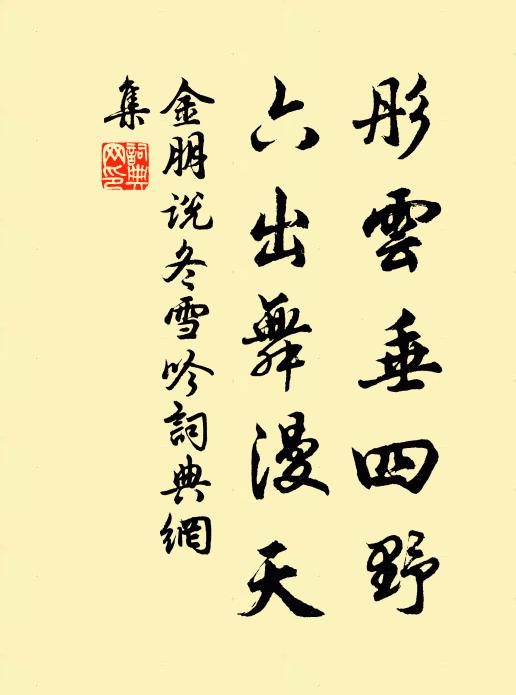 彤雲垂四野
六出舞漫天
金朋说冬雪吟詞典網
集
詞典
网印